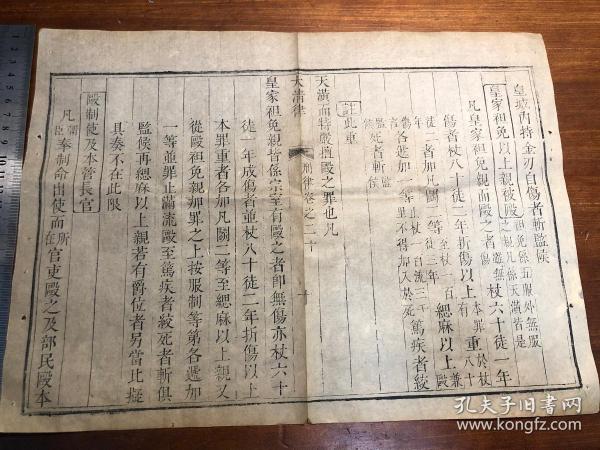 皇城內持金刃自傷者斬監候
皇家袒免以上親被毆袒免係五服外無服之親凡係天潢者是
凡皇家袒免親而毆之者雖無傷杖六十徒一年
傷者杖八十徒二年折傷以上本罪重於杖八十
徒二年者加凡鬬二等至杖一百徒三年緦麻以上兼毆
傷各遞加一等止杖一百流三千里不得加入於死篤疾者絞
監候死者斬監候
註此重
天潢而特嚴摳毆之罪也凡
大清律
刑律卷之二十
十
皇家袒免親皆係宗室有毆之者即無傷亦杖六十
徒一年成傷者並杖八十徒二年折傷以上
本罪重者各加凡鬬二等至緦麻以上親又
從毆袒免親加罪之上按服制等第各遞加
一等並罪止滿流毆至篤疾者絞死者斬俱
監候再緦麻以上親若有爵位者另當比擬
具奏不在此限
毆制使及本管長官
凡朝臣奉制命出使而所在官吏毆之及部民毆本
孔夫子旧書网
www.kongfz.com